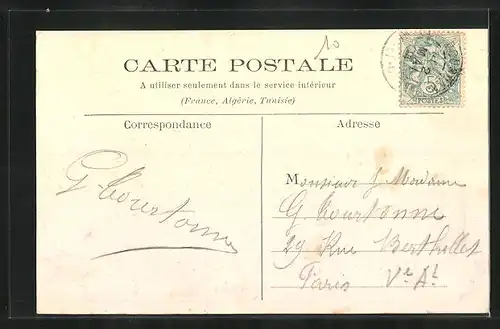 10
CARTE POSTALE
A utiliser seulement dans le service intérieur
(France, Algérie, Tunisie)
Correspondance
Adresse
G Courtonne
Monsieur & Madame
G Courtonne
29 Rue Berthollet
Paris Ve At
5
POSTES